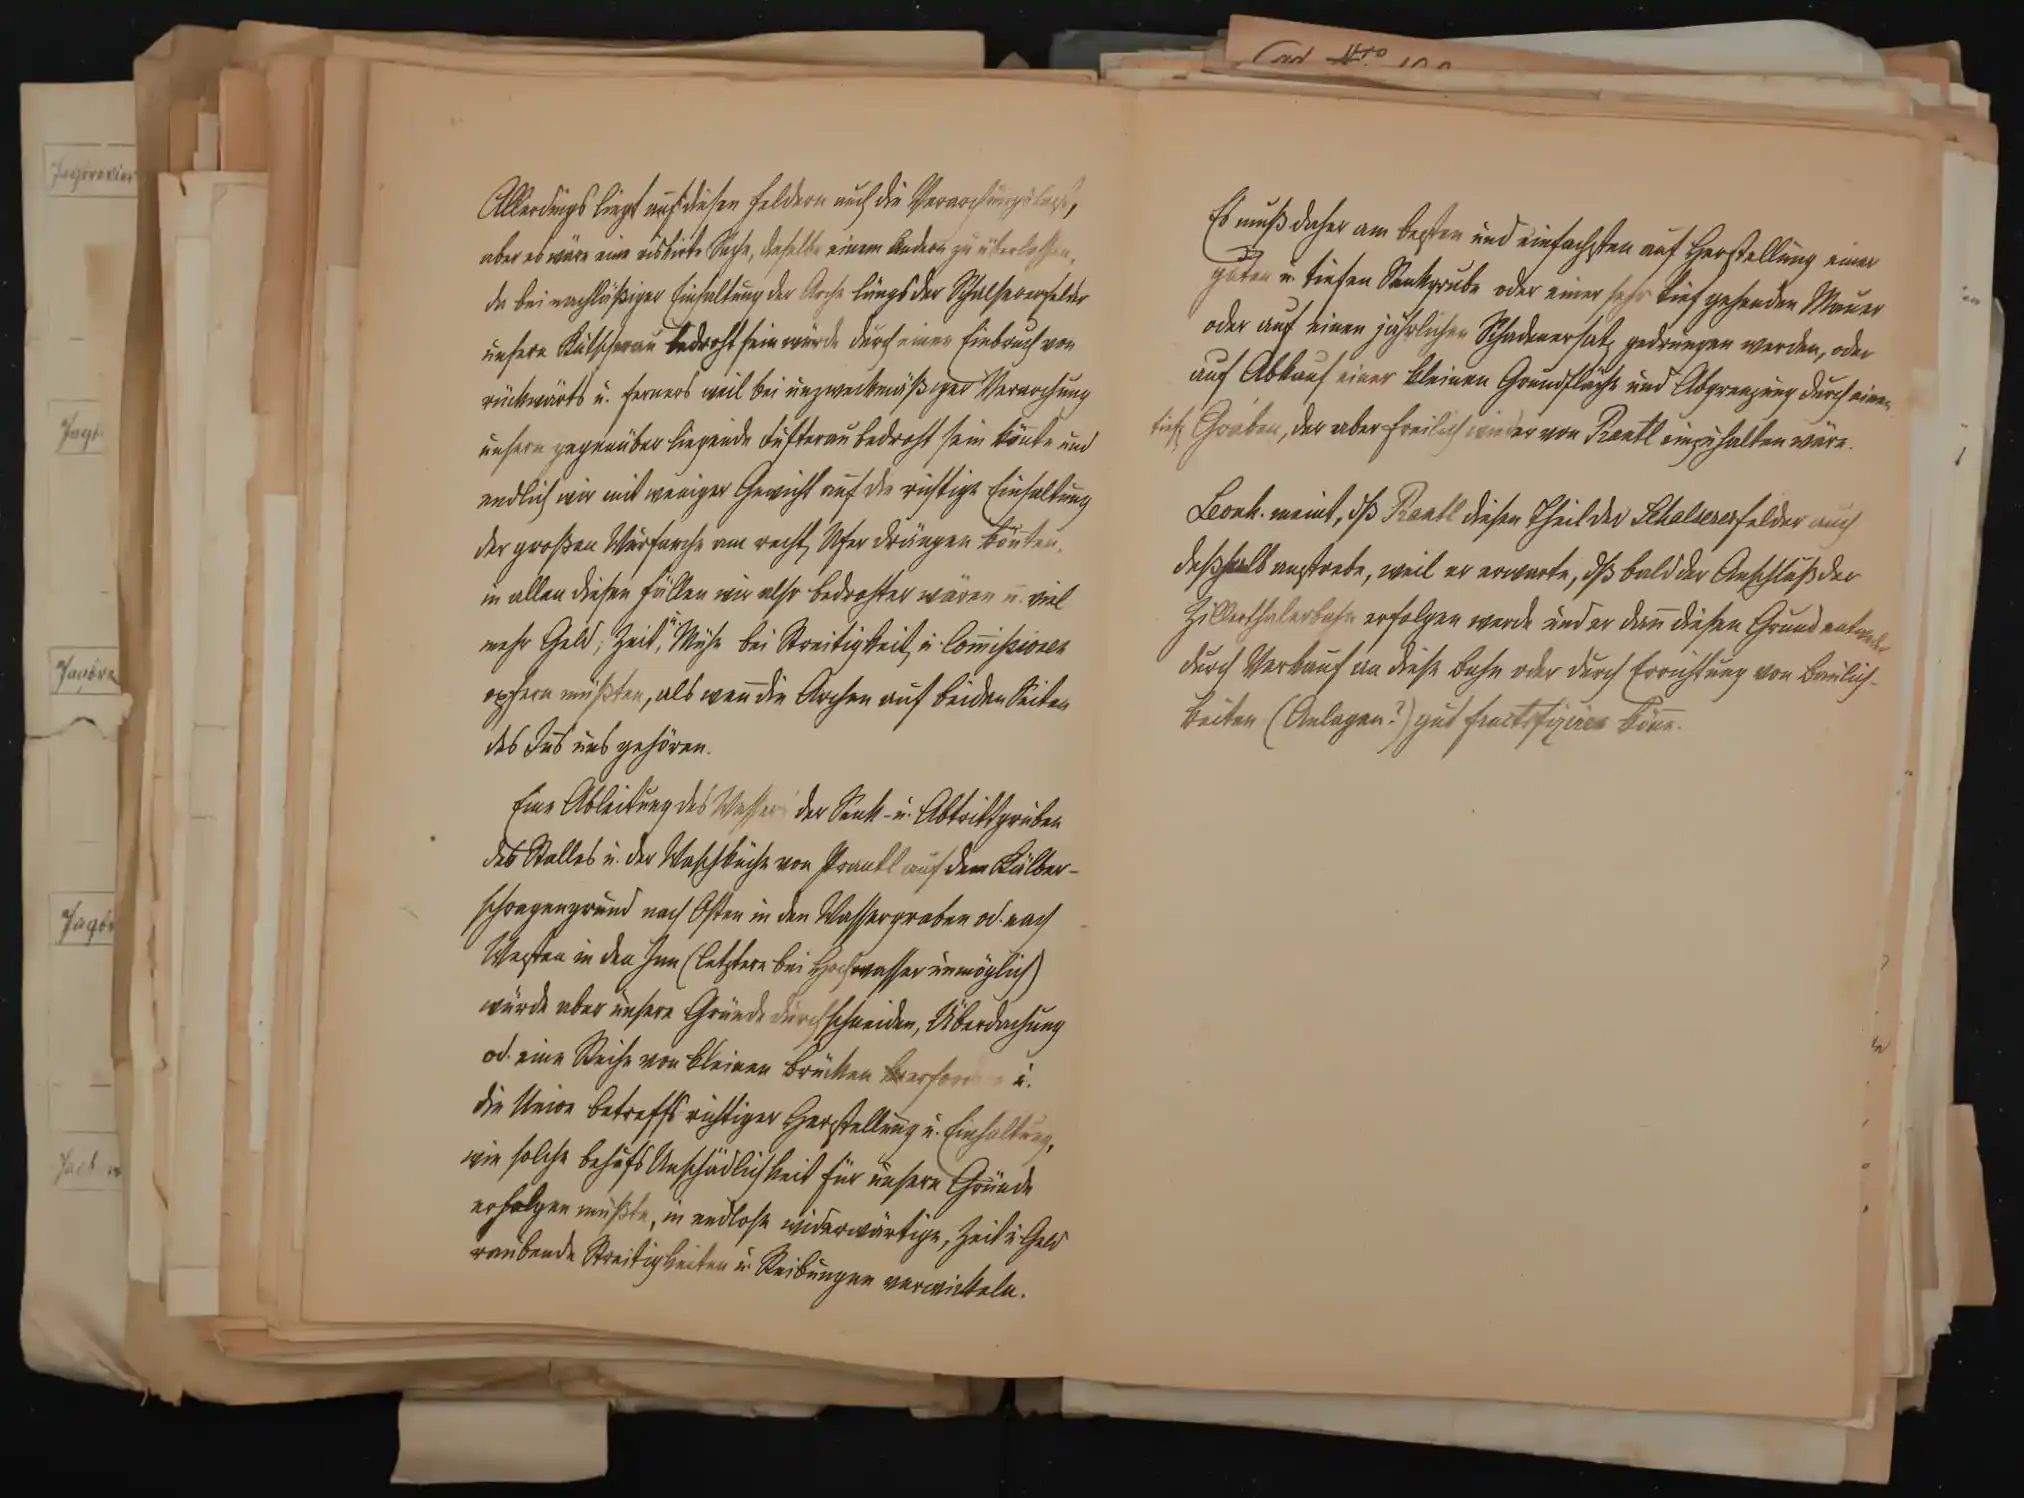 Allerdings liegt auf diesen Feldern auch die Verarchungslast,
aber es wäre eine riskirte Sache, dieselbe einem Andern zu überlassen,
da bei nachläßiger Einhaltung der Arche längs der Schalsererfelder
unsere Kutscherau bedroht sein würde durch einen Einbruch von
rückwärts u. ferners weil bei unzweckmäßiger Verarchung
unsere gegenüber liegende Fütterau bedroht sein könnte und
endlich wir mit weniger Gewicht auf die richtige Einhaltung
der großen Wurfarche am recht. Ufer drängen könnten,
in allen diesen Fällen wir also bedrohter wären u. viel
mehr Geld, Zeit, u. Mühe bei Streitigkeit. u. Com̅issionen
opfern müßten, als wen̅ die Archen auf beiden Seiten
des Ins uns gehören.
Eine Ableitung des Wassers der Senk- u. Abtrittgruben
des Stalles u. der Waschküche von Prantl auf dem Kälber-
schragengrund nach Osten in den Wassergraben od. nach
Westen in den Inn (letztere bei Hochwasser unmöglich)
würde aber unsere Gründe durchschneiden, Überdachung
od. eine Reihe von kleinen Brücken erfordern u.
die Union betreffs richtiger Herstellung u. Einhaltung,
wie solche behufs Unschädlichkeit für unsere Gründe
erfolgen müßte, in endlose widerwärtige, Zeit u. Geld
raubende Streitigkeiten u. Reibungen verwickeln.
Es muß daher am besten und einfachsten auf Herstellung einer
guten u. tiefen Senkgrube oder einer sehr tief gehenden Mauer
oder auf einen jährlichen Schadenersatz gedrungen werden, oder
auf Abkauf einer kleinen Grundfläche und Abgrenzung durch einen
tief. Graben, der aber freilich wieder von Prantl einzuhalten wäre.
meint, dß Prantl diesen Theil der Schalsererfelder auch
deßhalb anstrebe, weil er erwarte, dß bald der Anschluß der
Zillerthalerbahn erfolgen werde und er dan̅ diesen Grund entweder
durch Verkauf an diese Bahn oder durch Errichtung von Baulich-
keiten (Anlagen?) gut fructifiziren kön̅e.
Jagdrevier